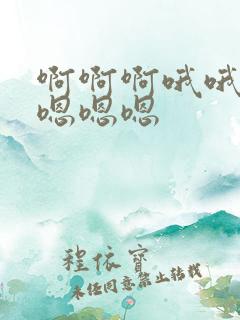 啊啊啊哦哦
嗯嗯嗯
程依宝
未经同意禁止转载